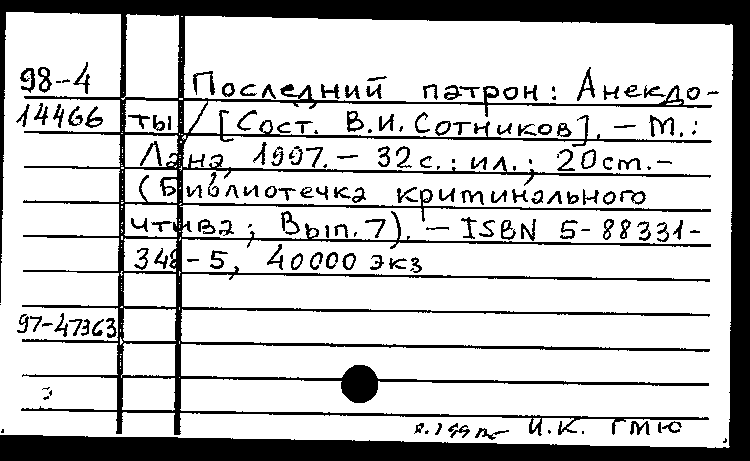 98-4 Последний патрон: Анекдо-
14466 ты / [Сост. В.И. Сотников]. – М.:
Лана, 1997. – 32 с.: ил.; 20 cm. –
(Библиотечка криминального
чтива; Вып. 7). – ISBN 5-88331-
348-5, 40000 экз
97-47363
И.К. ГМЮ